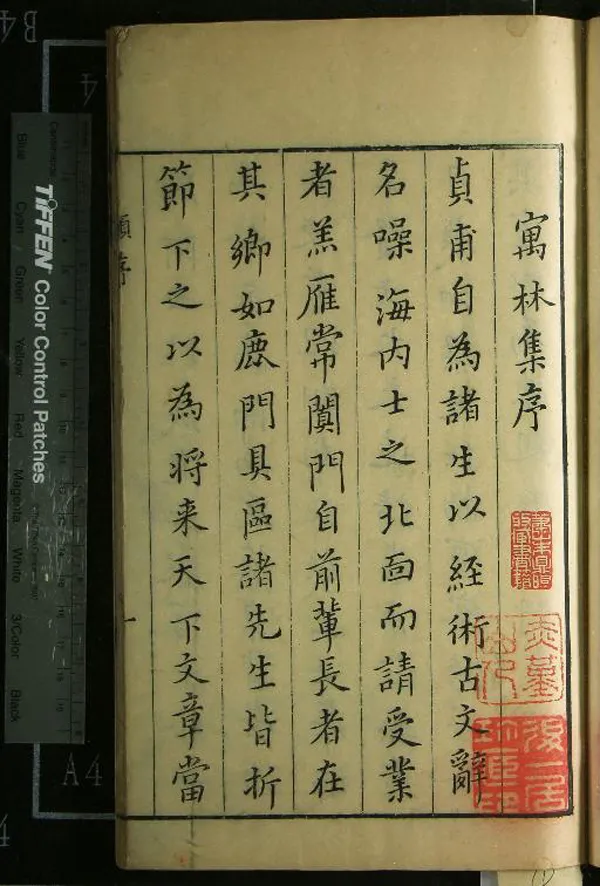 寓林集序
貞甫自為諸生以經術古文辭
名噪海内士之北面而請受業
者羔雁常闐門自前輩長者在
其鄉如鹿門具區諸先生皆折
節下之以為將来天下文章當
序
一
TIFFEN Color Control Patches
Blue
Cyan
Green
Yellow
Red
Magenta
White
3/Color
Black
B4
A4